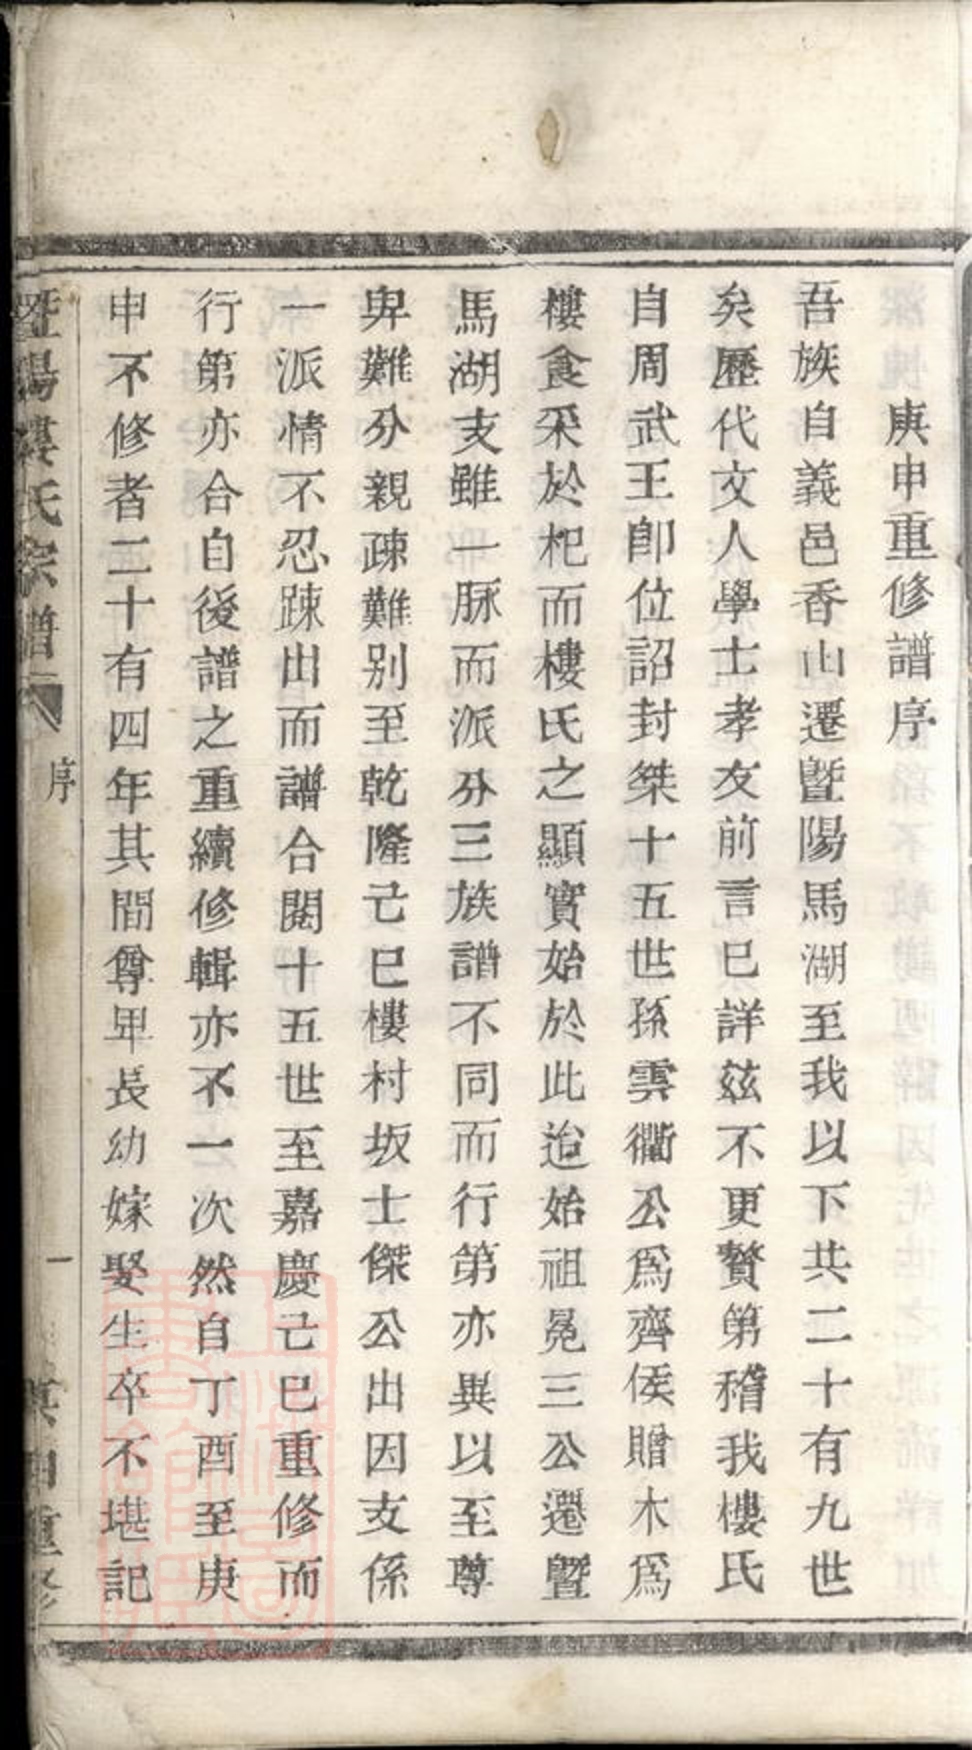 庚申重修譜序
吾族自義邑香山遷曁陽馬湖至我以下共二十有九世
矣歷代文人學士孝友前言已詳玆不更贅第稽我樓氏
自周武王卽位詔封桀十五世孫雲衢公爲齊侯贈木爲
樓食采於杞而樓氏之顯實始於此迨始祖晃三公遷曁
馬湖支雖一脉而派分三族譜不同而行第亦異以至尊
卑難分親疎難别至乾隆己巳樓村坂士傑公出因支係
一派情不忍踈出而譜合閱十五世至嘉慶己巳重修而
行第亦合自後譜之重續修輯亦不一次然自丁酉至庚
申不修者二十有四年其間尊卑長幼嫁娶生卒不堪記
曁陽樓氏宗譜
序
一